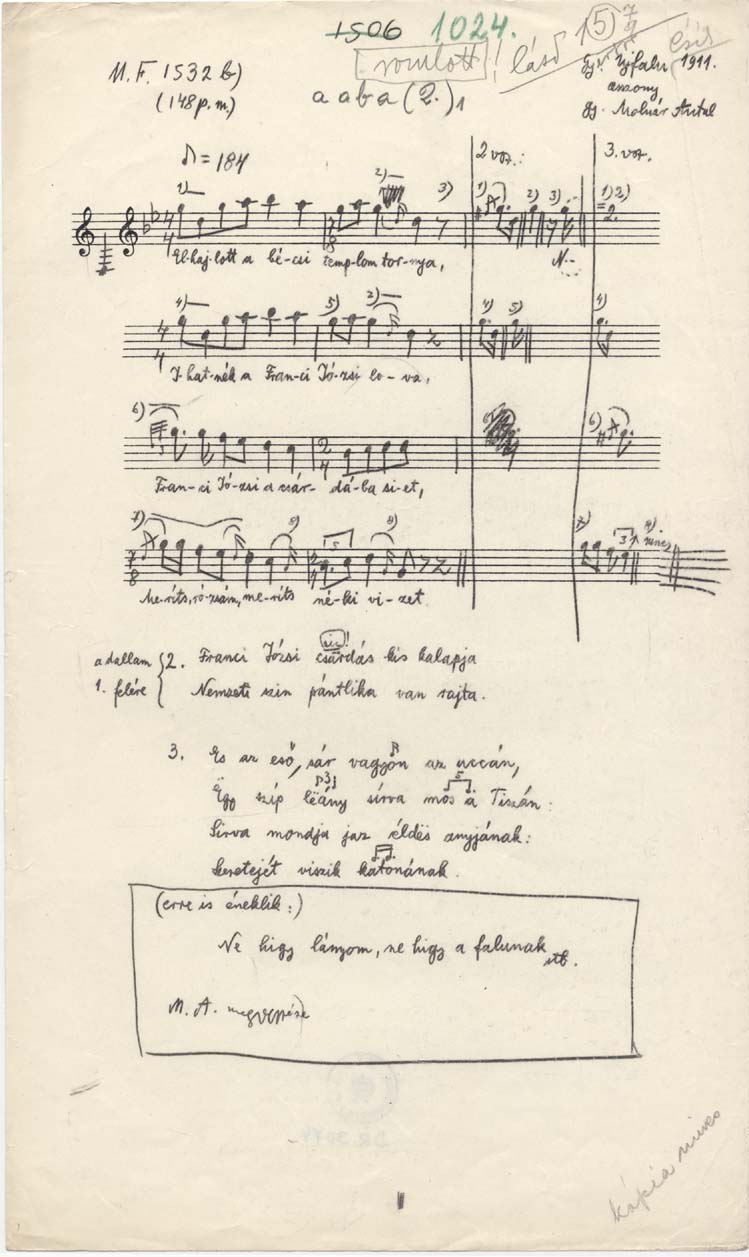 1506 1024.
romlott! lásd 15
M. F. 1532 b)
(148 p. m.)
a a b a (2.) 1
Gy. Ujfalu 1911.
asszony
gy. Molnár Antal
♪ = 184
2 vsz.:
3. vsz.
El-haj-lott a bé-csi temp-lom tor-nya,
I-hat-nék a Fran-ci Jó-zsi lo-va,
Fran-ci Jó-zsi a csár-dá-ba si-et,
Me-ríts, ró-zsám, me-ríts né-ki vi-zet
nincs
a dallam 1. felére
sic!
2. Franci Józsi csárdás kis kalapja
Nemzeti szin pántlika van rajta.
3. Es az eső, sár vagyon az uccán,
Ëgy szíp lëány sírva mos a Tiszán:
Sirva mondja jaz éldës anyjának:
Szeretejét viszik katonának.
(erre is éneklik:)
Ne higy lányom, ne higy a falunak stb.
M. A. megjegyzése
kópia nincs